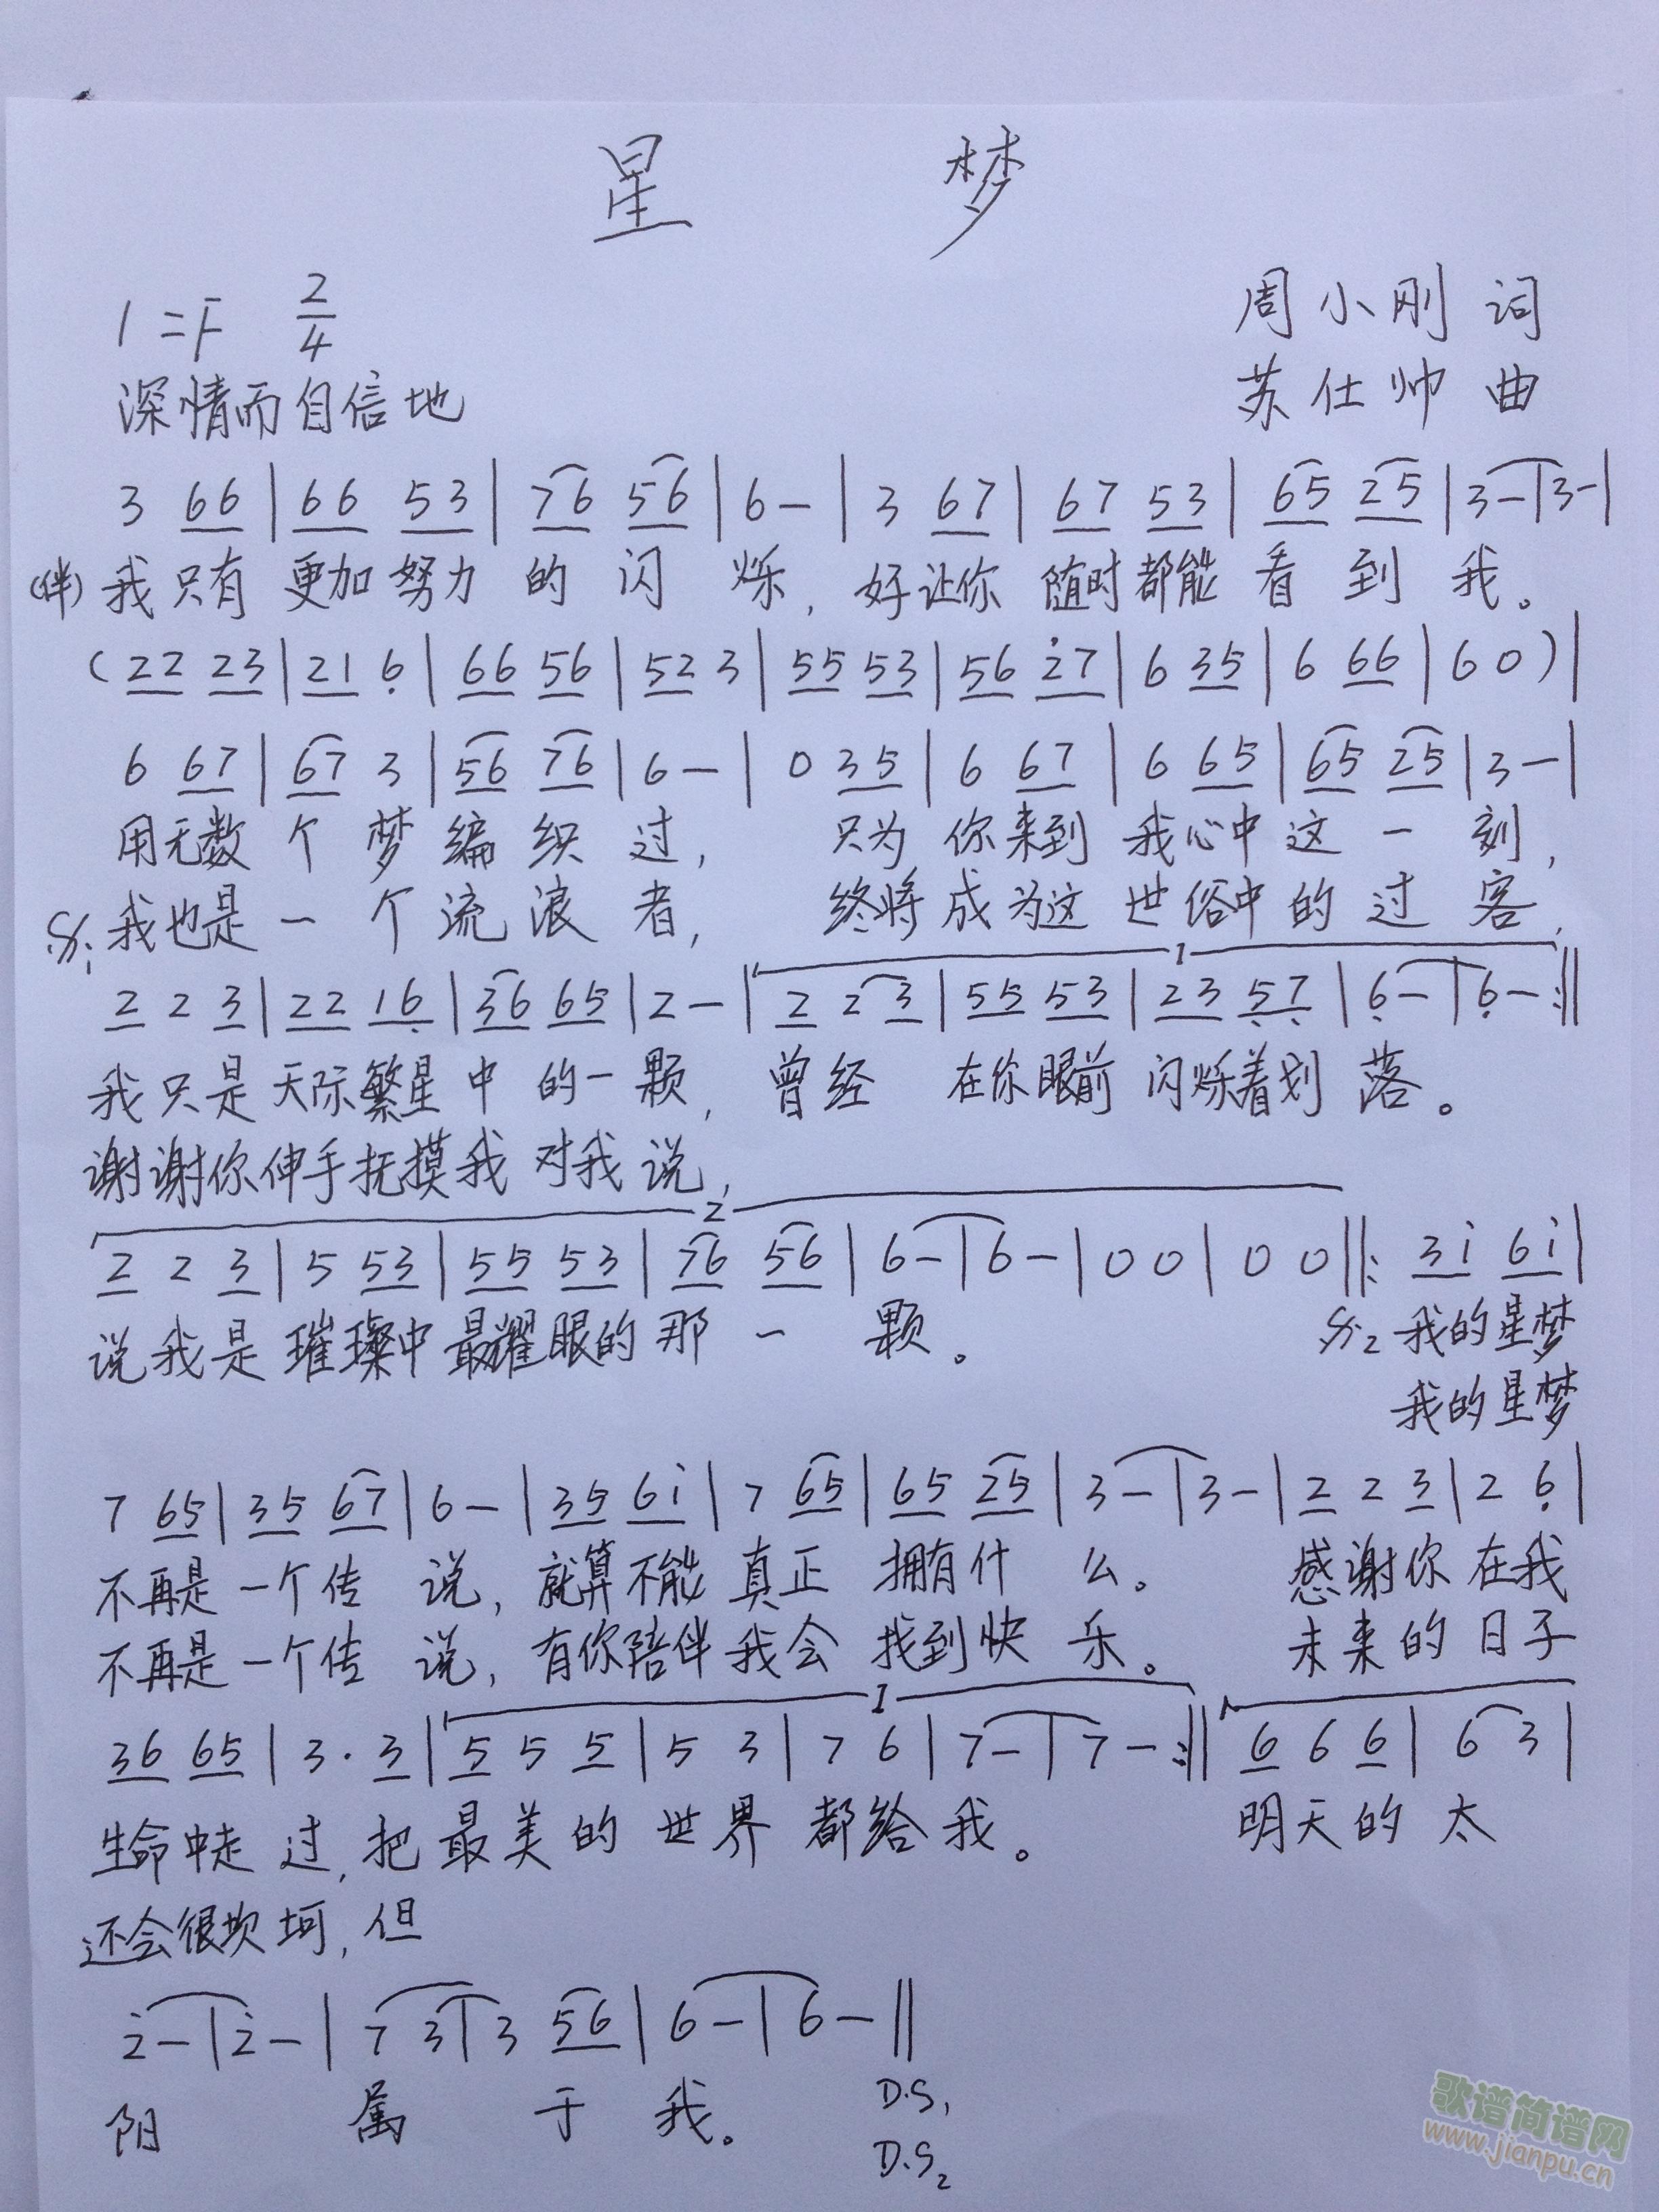 星 梦
1=F 2/4
周小刚 词
深情而自信地
苏仕帅 曲
3 66 | 66 53 | 76 56 | 6 – | 3 67 | 67 53 | 65 25 | 3 – | 3 – |
(伴) 我只有 更加努力 的 闪 烁, 好让你 随时都能 看 到 我。
( 22 23 | 21 6̣ | 66 56 | 52 3 | 55 53 | 56 2̇7 | 6 35 | 6 66 | 6 0 ) |
6 67 | 67 3 | 56 76 | 6 – | 0 35 | 6 67 | 6 65 | 65 25 | 3 – |
用无数 个 梦 编 织 过, 只为 你来到 我心中 这 一 刻,
𝄋1 我也是 一 个 流 浪 者, 终将 成为这 世俗中 的 过 客,
2 2 3 | 22 16̣ | 36 65 | 2 – | 1 2 2 3 | 55 53 | 23 5̣7̣ | 6̣ – | 6̣ – :‖
我只是 天际繁星 中 的一 颗, 曾经 在你眼前 闪烁着划 落。
谢谢你 伸手抚摸我 对我 说,
2 2 2 3 | 5 53 | 55 53 | 76 56 | 6 – | 6 – | 0 0 | 0 0 ‖: 31̇ 61̇ |
说我是 璀璨中 最耀眼的 那 一 颗。 𝄋2 我的星梦
我的星梦
7 65 | 35 67 | 6 – | 35 61̇ | 7 65 | 65 25 | 3 – | 3 – | 2 2 3 | 2 6̣ |
不再是 一个传 说, 就算不能 真正 拥有什 么。 感谢你 在我
不再是 一个传 说, 有你陪伴 我会 找到快 乐。 未来的 日子
36 65 | 3 · 3 | 1 5 5 5 | 5 3 | 7 6 | 7 – | 7 – :‖ 6 6 6 | 6 3 |
生命中走 过, 把 最美的 世界 都给 我。 明天的 太
还会很坎 坷, 但
2̇ – | 2̇ – | 7 3 | 3 56 | 6 – | 6 – ‖
阳 属 于 我。 D.S1
D.S2
歌谱简谱网
www.jianpu.cn